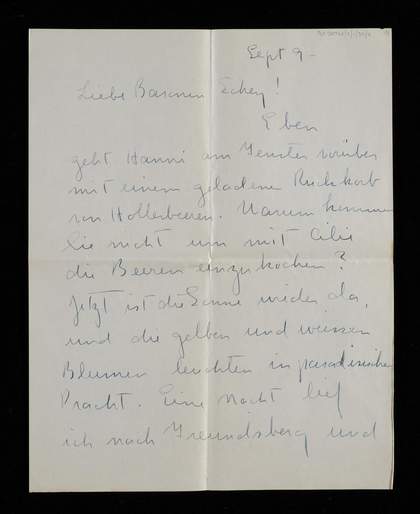 Sept 9-
Liebe Baronin Schey!
Eben
geht Hanni am Fenster vorüber
mit einem geladenen Rückkorb
von Hollerbeeren. Warum kommen
Sie nicht um mit Cilie
die Beeren einzukochen?
Jetzt ist die Sonne wieder da,
und die gelben und weissen
Blumen leuchten in paradisische
Pracht. Eine Nacht lief
ich nach Freundsberg und